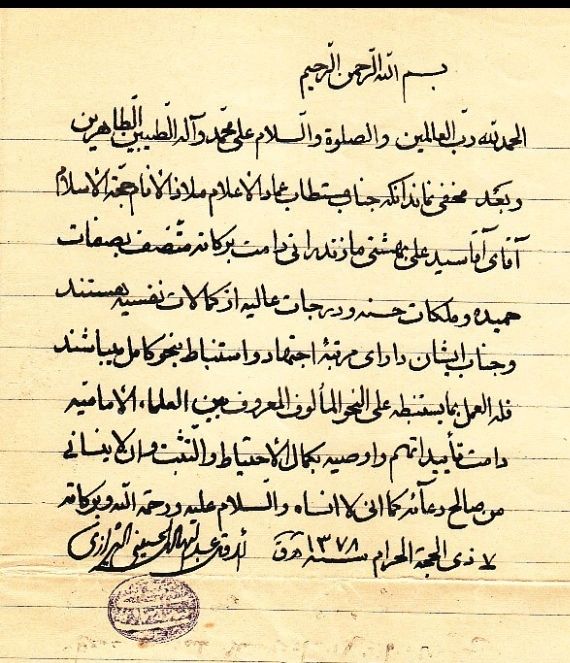 بسم الله الرحمن الرحیم
الحمدلله رب العالمین والصلوة والسلام علی محمد وآله الطیبین الطاهرین
وبعد مخفی نماندانکه جناب مستطاب عماد الاعلام ملاذ الانام حجة الاسلام
آقای آقا سید علی بهشتی مازندرانی دامت برکاته متصف بصفات
حمیده و ملکات حسنه و درجات عالیه از کمالات نفسیه هستند
و جناب ایشان دارای مرتبهٔ اجتهاد و استنباط بنحو کامل میباشند
فله العمل بما یستنبطه علی النحو المألوف المعروف بین العلماء الامامیه
دامت تأییداتهم و اوصیه بکمال الاحتیاط والتثبت و ان لاینسانی
من صالح دعائه کما انی لا انساه والسلام علیه و رحمة الله و برکاته
۷ ذی الحجة الحرام سنه ۱۳۷۸ ه‍ ق عبدالهادی الحسینی الشیرازی